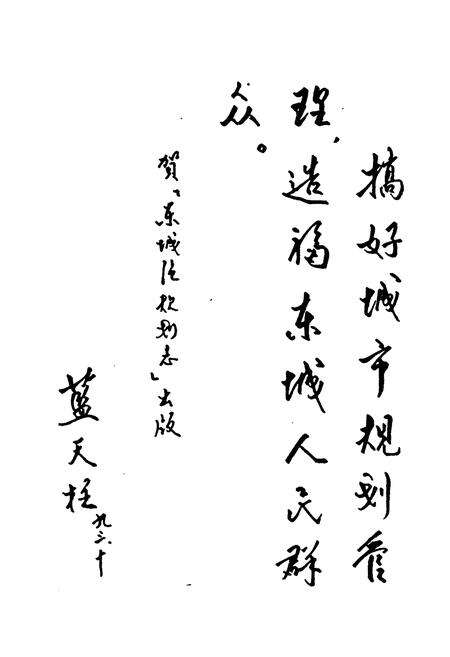 搞好城市规划管
理，造福东城人民群
众。
贺「东城区规划志」出版
藍天柱
九三、十